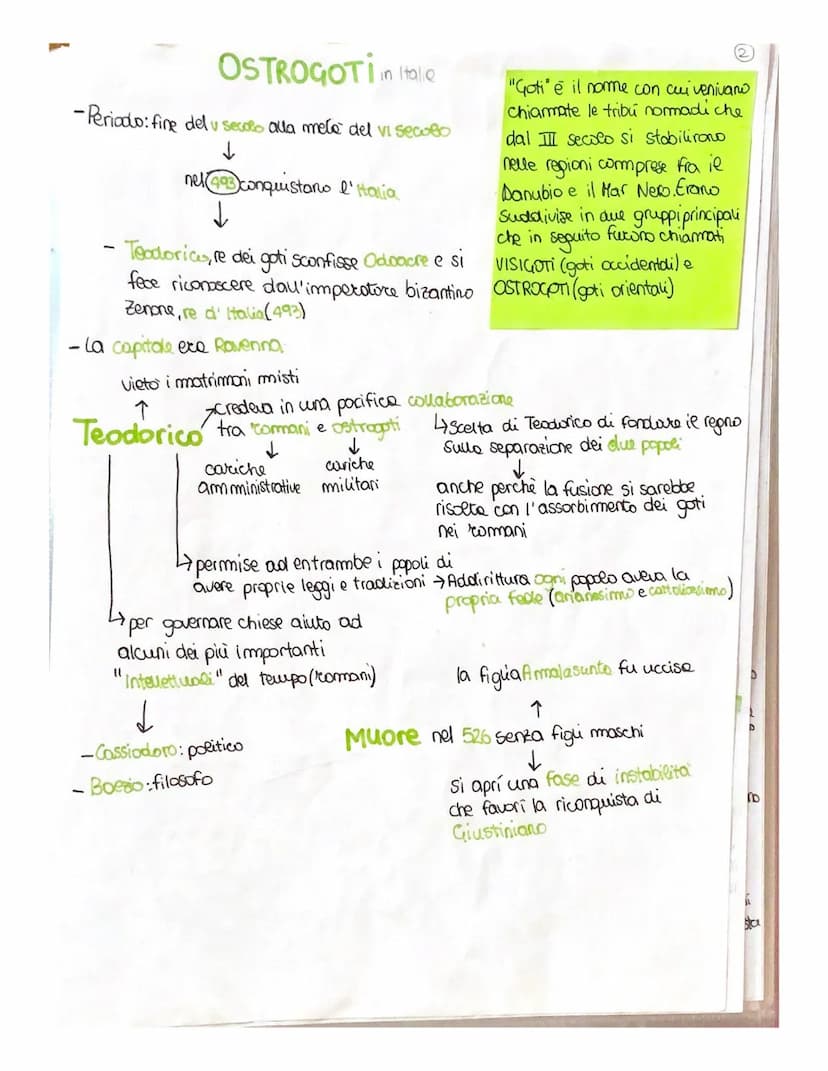 2
OSTROGOTI in Italie
-Periodo: fine del V secolo alla metà del VI secolo
↓
nel 493 conquistano l'Italia
↓
- Teodorico, re dei goti sconfisse Odoacre e si
fece riconoscere dall'imperatore bizantino
Zenone, re d'Italia (493)
"Goti" è il nome con cui venivano
chiamate le tribù normadi che
dal III secolo si stabilirono
nelle regioni comprese fra il
Danubio e il Mar Nero. Erano
Suddivise in due gruppi principali
che in seguito furono chiamati
VISIGOTI (goti occidentali) e
OSTROGOTI (goti orientali)
- La capitale era Ravenna
vietò i matrimoni misti
↑
Teodorico
credeva in una pacifica collaborazione
tra romani e ostrogoti
↓ ↓
cariche cariche
amministrative militari
↳ Scelta di Teodorico di fondare il regno
sulla separazione dei due popoli
↓
anche perchè la fusione si sarebbe
risolta con l'assorbimento dei goti
nei romani
↳ permise ad entrambe i popoli di
avere proprie leggi e tradizioni → Addirittura ogni popolo aveva la
propria fede (arianesimo e cattolicesimo)
↳ per governare chiese aiuto ad
alcuni dei più importanti
"Intellettuali" del tempo (romani)
↓
- Cassiodoro: politico
- Boezio: filosofo
la figlia Amalasunta fu uccisa
↑
Muore nel 526 senza figli maschi
↓
si aprí una fase di instabilità
che favorì la riconquista di
Giustiniano